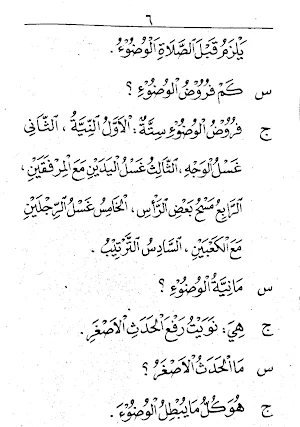 ٦
يَلْزَمُ قَبْلَ الصَّلَاةِ الْوُضُوْءُ .
س كَمْ فُرُوْضُ الْوُضُوْءِ ؟
ج فُرُوْضُ الْوُضُوْءِ سِتَّةٌ : اَلْأَوَّلُ النِّيَّةُ ، الثَّانِى
غَسْلُ الْوَجْهِ ، الثَّالِثُ غَسْلُ الْيَدَيْنِ مَعَ الْمِرْفَقَيْنِ ،
الرَّابِعُ مَسْحُ بَعْضِ الرَّأْسِ ، الْخَامِسُ غَسْلُ الرِّجْلَيْنِ
مَعَ الْكَعْبَيْنِ ، السَّادِسُ التَّرْتِيْبُ .
س مَا نِيَّةُ الْوُضُوْءِ ؟
ج هِيَ : نَوَيْتُ رَفْعَ الْحَدَثِ الْأَصْغَرِ .
س مَا الْحَدَثُ الْأَصْغَرُ ؟
ج هُوَ كُلُّ مَا يُبْطِلُ الْوُضُوْءَ .